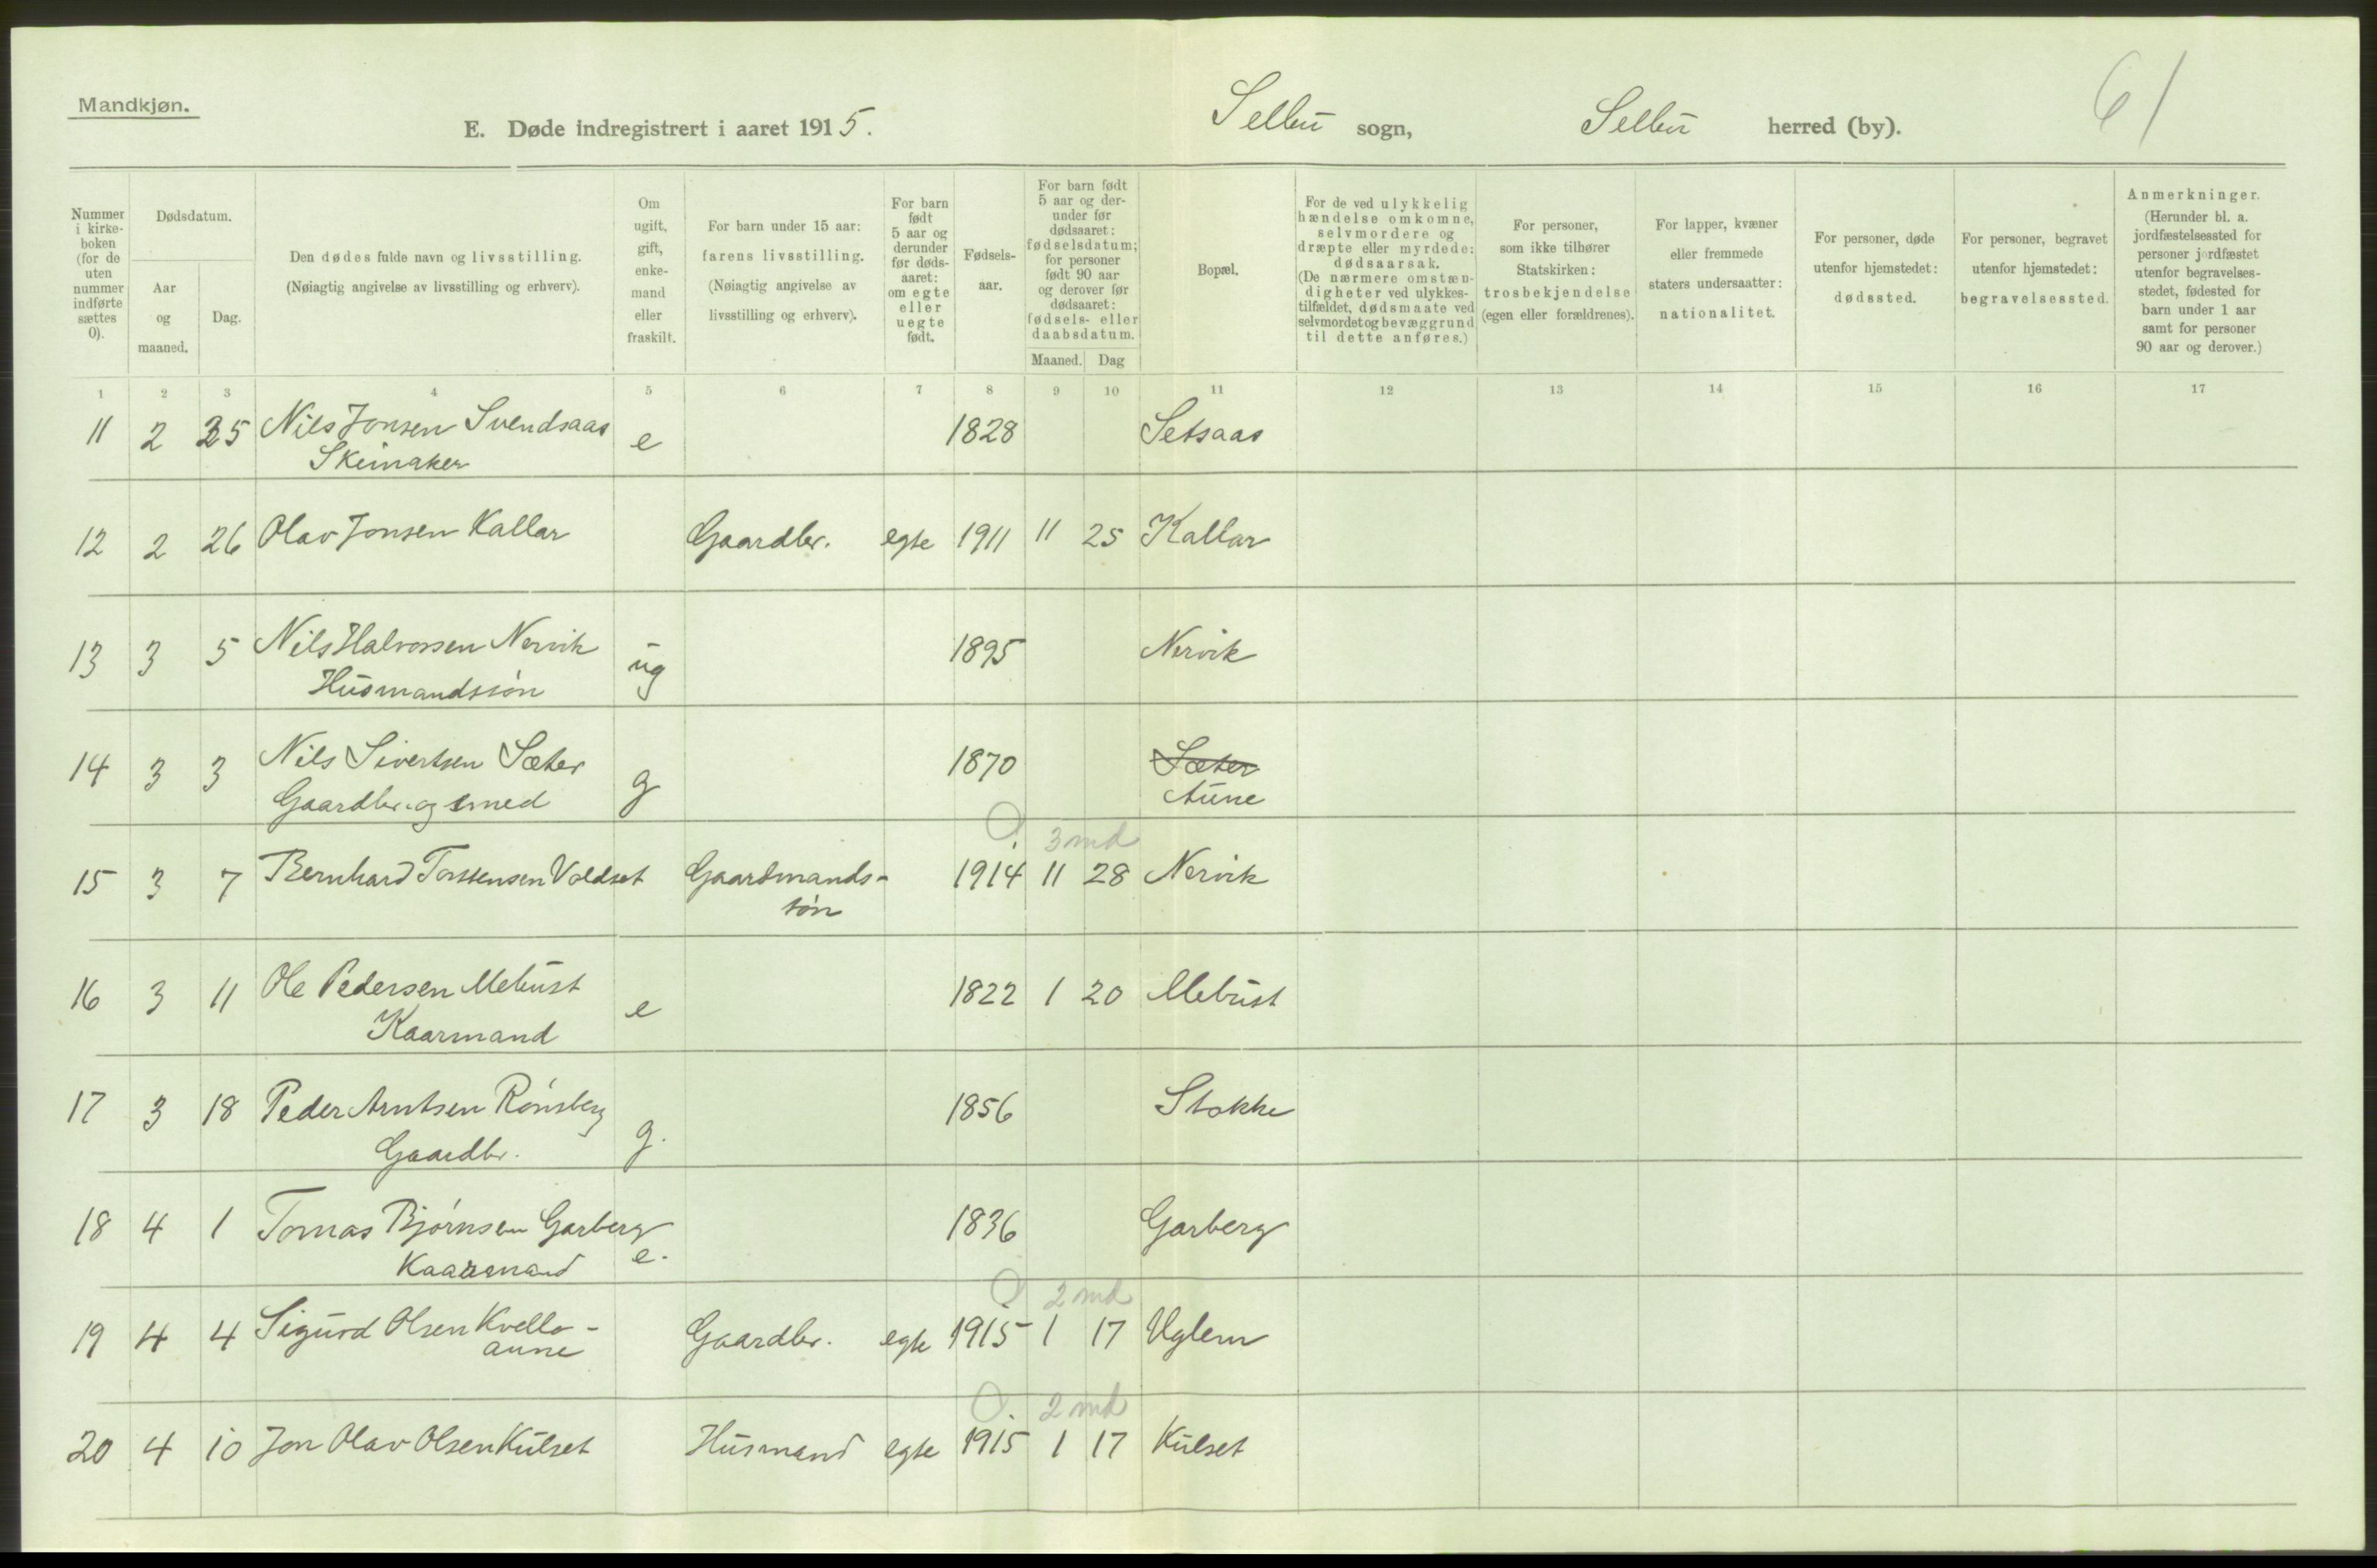 Mandkjøn.
E. Døde indregistrert i aaret 1915.
Selbu sogn,
Selbu herred (by).
61
Nummer i kirkeboken (for de uten nummer indførte sættes 0).
Dødsdatum.
Aar og maaned.
Dag.
Den dødes fulde navn og livsstilling.
(Nøiagtig angivelse av livsstilling og erhverv).
Om ugift, gift, enkemand eller fraskilt.
For barn under 15 aar:
farens livsstilling.
(Nøiagtig angivelse av livsstilling og erhverv).
For barn født 5 aar og derunder før dødsaaret: om egte eller uegte født.
Fødselsaar.
For barn født 5 aar og derunder før dødsaaret: fødselsdatum; for personer født 90 aar og derover før dødsaaret: fødsels- eller daabsdatum.
Maaned.
Dag
Bopæl.
For de ved ulykkelig hændelse omkomne, selvmordere og dræpte eller myrdede: dødsaarsak.
(De nærmere omstændigheter ved ulykkestilfældet, dødsmaate ved selvmordet og bevæggrund til dette anføres.)
For personer, som ikke tilhører Statskirken: trosbekjendelse (egen eller forældrenes).
For lapper, kvæner eller fremmede staters undersaatter: nationalitet.
For personer, døde utenfor hjemstedet: dødssted.
For personer, begravet utenfor hjemstedet: begravelsessted.
Anmerkninger.
(Herunder bl. a. jordfæstelsessted for personer jordfæstet utenfor begravelsesstedet, fødested for barn under 1 aar samt for personer 90 aar og derover.)
1 2 3 4 5 6 7 8 9 10 11 12 13 14 15 16 17
11 2 25 Nils Jonsen Svendsaas e 1828 Setsaas
Skeimaker
12 2 26 Olav Jonsen Kallar Gaardbr. egte 1911 11 25 Kallar
13 3 5 Nils Halvorsen Nervik ug 1895 Nervik
Husmandssøn
14 3 3 Nils Sivertsen Sæter g 1870 Sæter
Gaardbr. og smed Aune
0. 3 md
15 3 7 Bernhard Torstensen Voldset Gaardmands- 1914 11 28 Nervik
søn
16 3 11 Ole Pedersen Mebust e 1822 1 20 Mebust
Kaarmand
17 3 18 Peder Arntsen Rønsberg g. 1856 Stokke
Gaardbr.
18 4 1 Tomas Bjørnsen Garberg e. 1836 Garberg
Kaarmand
0. 2 md
19 4 4 Sigurd Olsen Kvello- Gaardbr. egte 1915 1 17 Uglem
aune
0. 2 md
20 4 10 Jon Olav Olsen Kulset Husmand egte 1915 1 17 Kulset